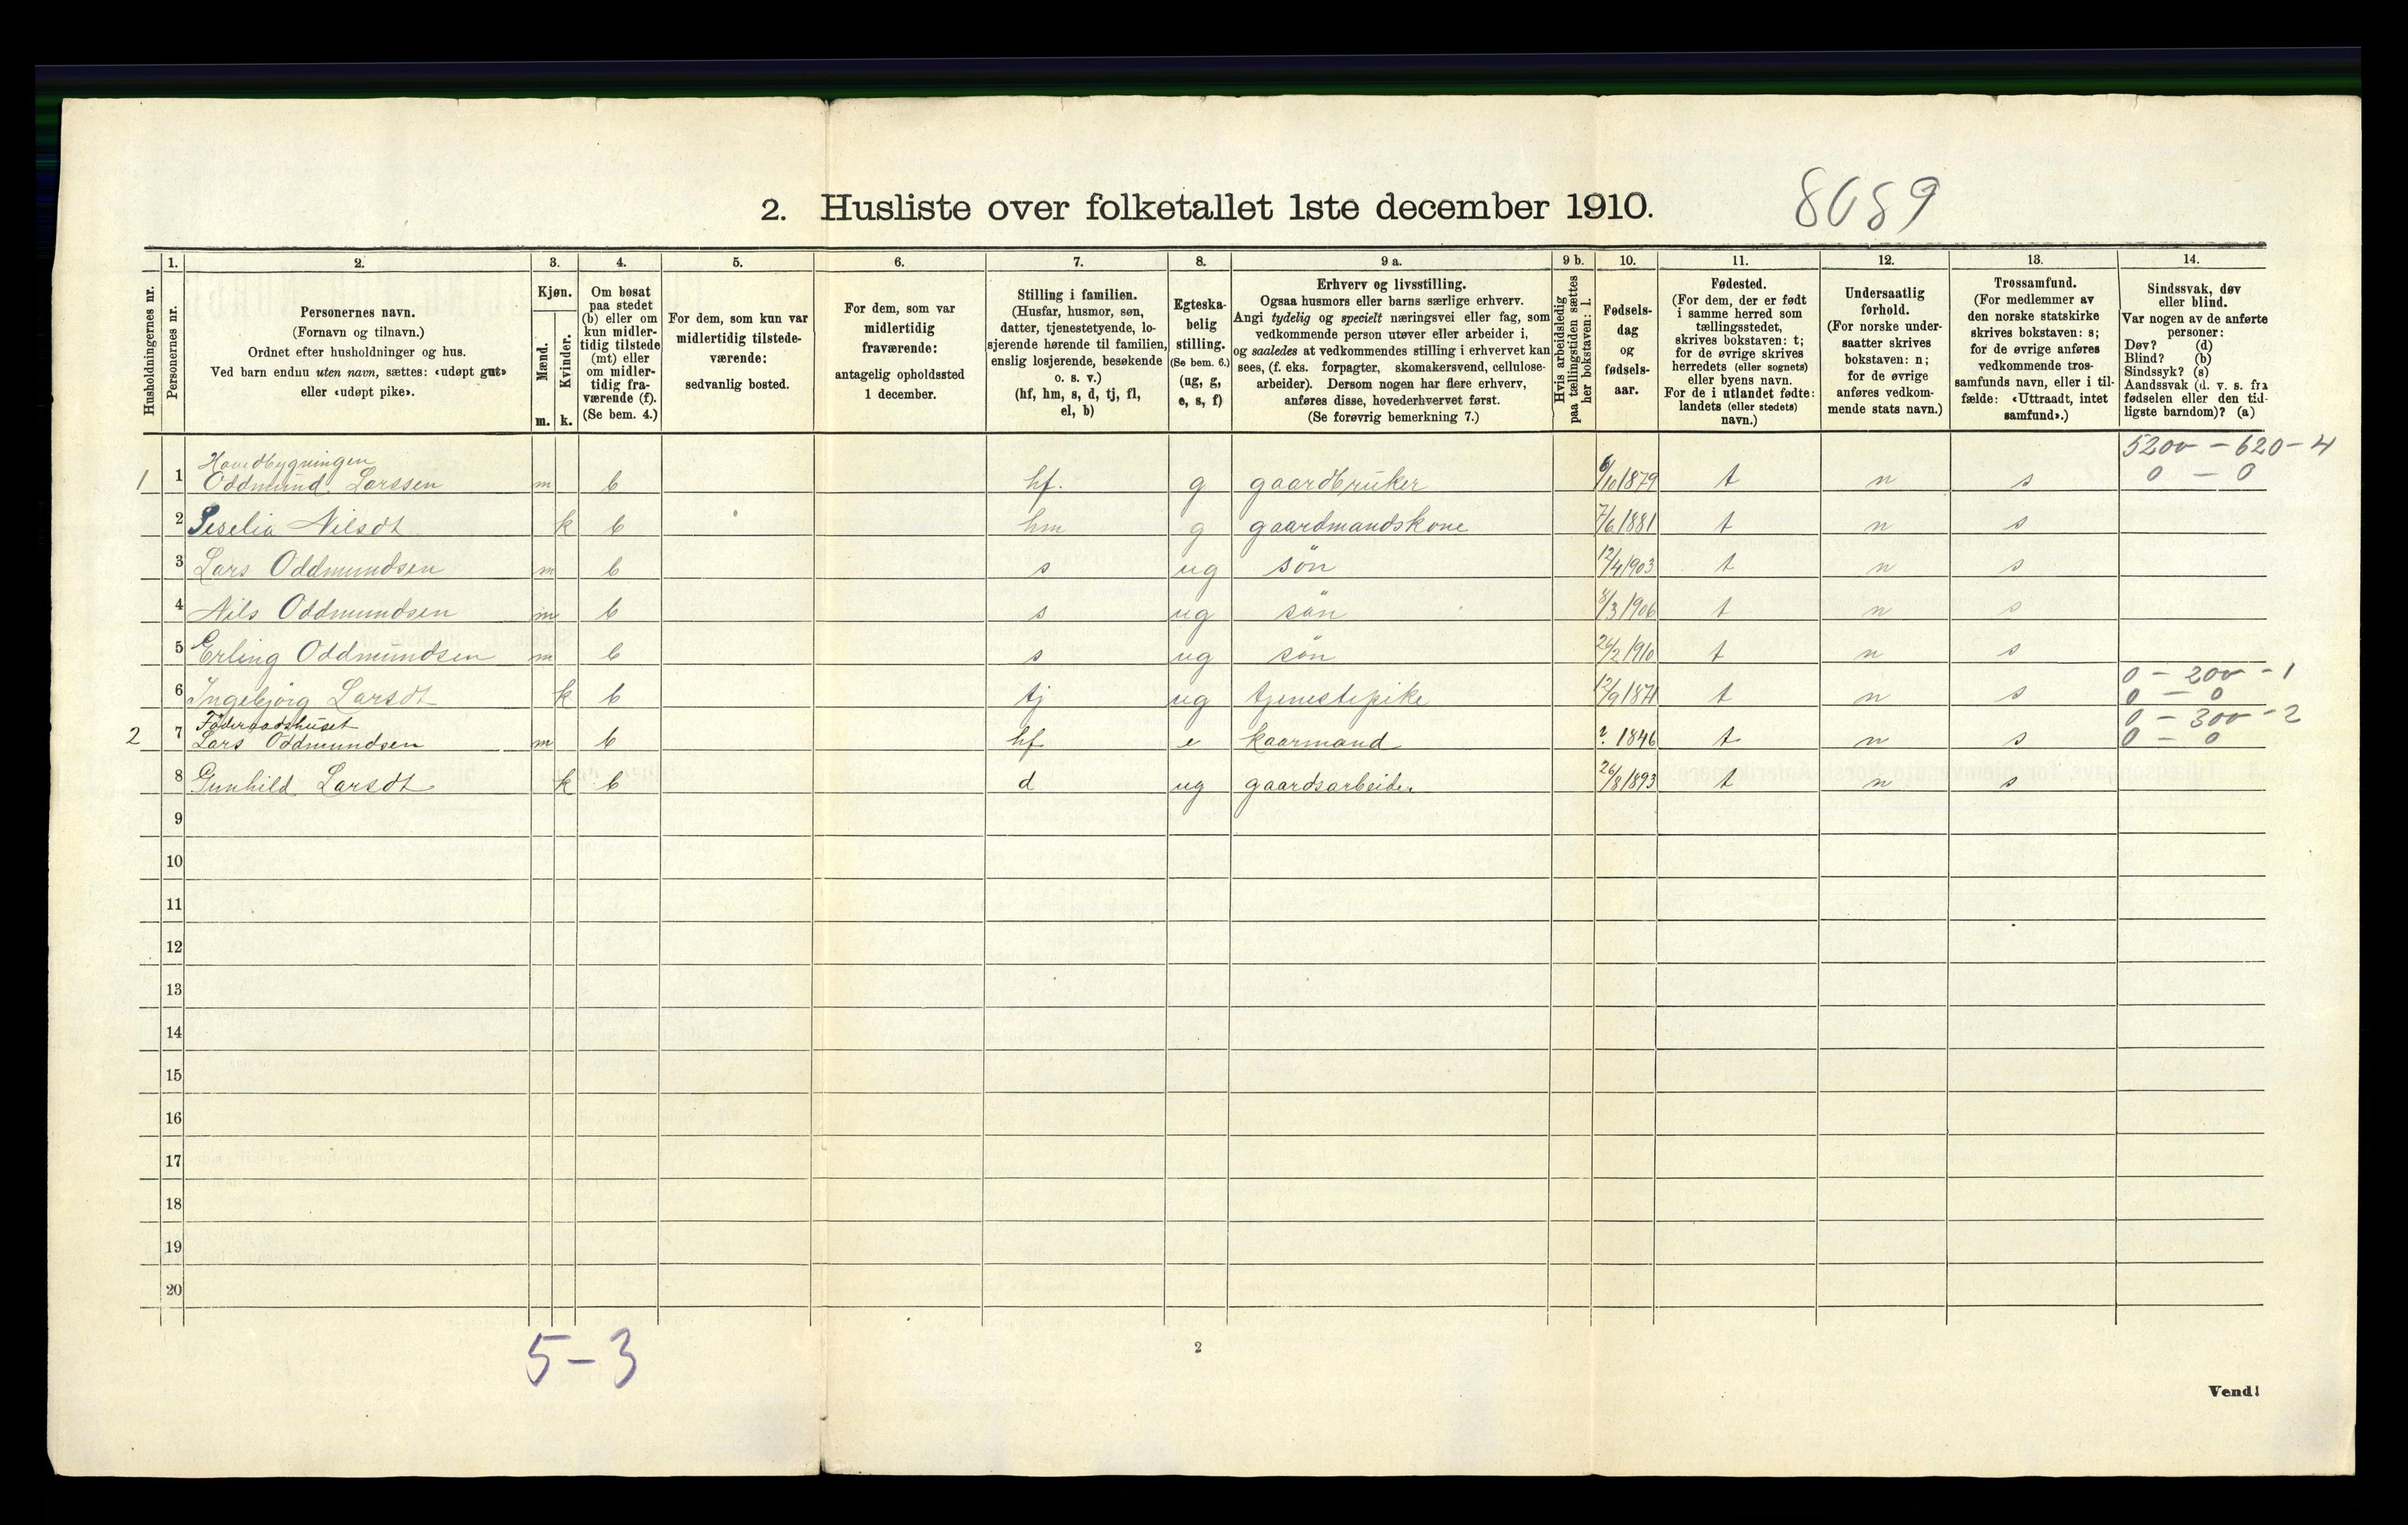 2. Husliste over folketallet 1ste december 1910.
8689
Husholdningernes nr.
1.
Personernes nr.
2.
Personernes navn.
(Fornavn og tilnavn.)
Ordnet efter husholdninger og hus.
Ved barn endnu uten navn, sættes: «udøpt gut»
eller «udøpt pike».
3.
Kjøn.
Mænd.
m.
Kvinder.
k.
4.
Om bosat
paa stedet
(b) eller om
kun midler-
tidig tilstede
(mt) eller
om midler-
tidig fra-
værende (f).
(Se bem. 4.)
5.
For dem, som kun var
midlertidig tilstede-
værende:
sedvanlig bosted.
6.
For dem, som var
midlertidig
fraværende:
antagelig opholdssted
1 december.
7.
Stilling i familien.
(Husfar, husmor, søn,
datter, tjenestetyende, lo-
sjerende hørende til familien,
enslig losjerende, besøkende
o. s. v.)
(hf, hm, s, d, tj, fl,
el, b)
8.
Egteska-
belig
stilling.
(Se bem. 6.)
(ug, g,
e, s, f)
9 a.
Erhverv og livsstilling.
Ogsaa husmors eller barns særlige erhverv.
Angi tydelig og specielt næringsvei eller fag, som
vedkommende person utøver eller arbeider i,
og saaledes at vedkommendes stilling i erhvervet kan
sees, (f. eks. forpagter, skomakersvend, cellulose-
arbeider). Dersom nogen har flere erhverv,
anføres disse, hovederhvervet først.
(Se forøvrig bemerkning 7.)
9 b.
Hvis arbeidsledig
paa tællingstiden sættes
her bokstaven: l.
10.
Fødsels-
dag
og
fødsels-
aar.
11.
Fødested.
(For dem, der er født
i samme herred som
tællingsstedet,
skrives bokstaven: t;
for de øvrige skrives
herredets (eller sognets)
eller byens navn.
For de i utlandet fødte:
landets (eller stedets)
navn.)
12.
Undersaatlig
forhold.
(For norske under-
saatter skrives
bokstaven: n;
for de øvrige
anføres vedkom-
mende stats navn.)
13.
Trossamfund.
(For medlemmer av
den norske statskirke
skrives bokstaven: s;
for de øvrige anføres
vedkommende tros-
samfunds navn, eller i til-
fælde: «Uttraadt, intet
samfund».)
14.
Sindssvak, døv
eller blind.
Var nogen av de anførte
personer:
Døv? (d)
Blind? (b)
Sindssyk? (s)
Aandssvak (d. v. s. fra
fødselen eller den tid-
ligste barndom)? (a)
Hovedbygningen 5200 – 620 – 4
1 1 Oddmund Larssen m b hf. g gaardbruker 6/10 1879 t n s 0 – 0
2 Seselia Nilsdt k b hm g gaardmandskone 7/6 1881 t n s
3 Lars Oddmundsen m b s ug sön 12/4 1903 t n s
4 Nils Oddmundsen m b s ug sön 8/3 1906 t n s
5 Erling Oddmundsen m b s ug sön 26/2 1910 t n s
0 – 200 – 1
6 Ingebjörg Larsdt k b tj ug tjenestepike 12/9 1871 t n s 0 – 0
Föderaadshuset 0 – 300 – 2
2 7 Lars Oddmundsen m b hf e kaarmand ?. 1846 t n s 0 – 0
8 Gunhild Larsdt k b d ug gaardsarbeider 26/8 1893 t n s
9
10
11
12
13
14
15
16
17
18
19
20
5 – 3
2
Vend!